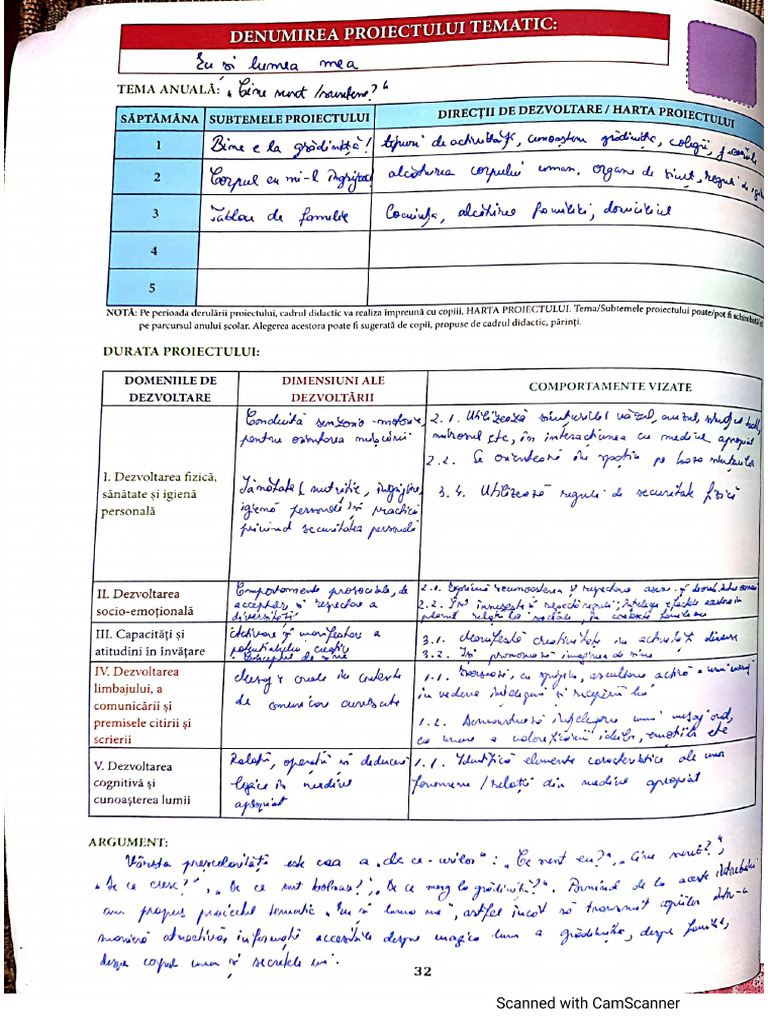 DENUMIREA PROIECTULUI TEMATIC:
Eu și lumea mea
TEMA ANUALĂ: „Cine sunt/suntem?"
SĂPTĂMÂNA SUBTEMELE PROIECTULUI DIRECȚII DE DEZVOLTARE / HARTA PROIECTULUI
1 Bine e la grădiniță! tipuri de activități, cunoaștem grădinița, colegii,
2 Corpul cu mi-l îngrijesc alcătuirea corpului uman, organe de simț, reguli de
3 Tablou de familie Locuința, alcătuirea familiei, domiciliul
4
5
NOTĂ: Pe perioada derulării proiectului, cadrul didactic va realiza împreună cu copiii, HARTA PROIECTULUI. Tema/Subtemele proiectului poate/pot fi
pe parcursul anului școlar. Alegerea acestora poate fi sugerată de copii, propuse de cadrul didactic, părinți.
DURATA PROIECTULUI:
DOMENIILE DE DEZVOLTARE
DIMENSIUNI ALE DEZVOLTĂRII
COMPORTAMENTE VIZATE
I. Dezvoltarea fizică,
sănătate și igienă
personală
Conduită senzorio-motorie,
pentru orientarea mișcării
Sănătate (nutriție, îngrijire,
igienă personală) și practici
privind securitatea personală
2.1. Utilizează simțurile (văzul, auzul, simțul tactil,
mirosul etc, în interacțiunea cu mediul apropiat
2.2. Se orientează în spațiu pe baza simțurilor
3.4. Utilizează reguli de securitate fizică
II. Dezvoltarea
socio-emoțională
Comportamente prosociale, de
acceptare și respectare a
diversității
2.1. Exprimă recunoașterea și respectarea
2.2. Își însușește și respectă reguli; înțelege efectele acestora în
planul relațiilor sociale, în contexte familiare
III. Capacități și
atitudini în învățare
Activare și manifestare a
potențialului creativ
Conceptul de sine
3.1. Manifestă creativitate în activități diverse
3.2. Își promovează imaginea de sine
IV. Dezvoltarea
limbajului, a
comunicării și
premisele citirii și
scrierii
Mesaje orale în contexte
de comunicare cunoscute
1.1. Exersează, cu sprijin, ascultarea activă a unui mesaj
în vederea înțelegerii și receptării lui
1.2. Demonstrează înțelegerea unui mesaj oral,
ca urmare a valorificării ideilor, emoțiilor etc
V. Dezvoltarea
cognitivă și
cunoașterea lumii
Relații, operații și deducții
logice în mediul
apropiat
1.1. Identifică elemente caracteristice ale unor
fenomene/relații din mediul apropiat
ARGUMENT:
Vârsta preșcolarității este cea a „de ce-urilor": „Ce sunt eu?", „Cine sunt?",
„De ce cresc?", „De ce sunt bolnav?", „De ce merg la grădiniță?". Pornind de la aceste întrebări
am propus proiectul tematic „Eu și lumea mea", astfel încât să transmit copiilor într-o
manieră atractivă informații accesibile despre magica lume a grădiniței, despre familie,
despre corpul uman și secretele lui.
32
Scanned with CamScanner